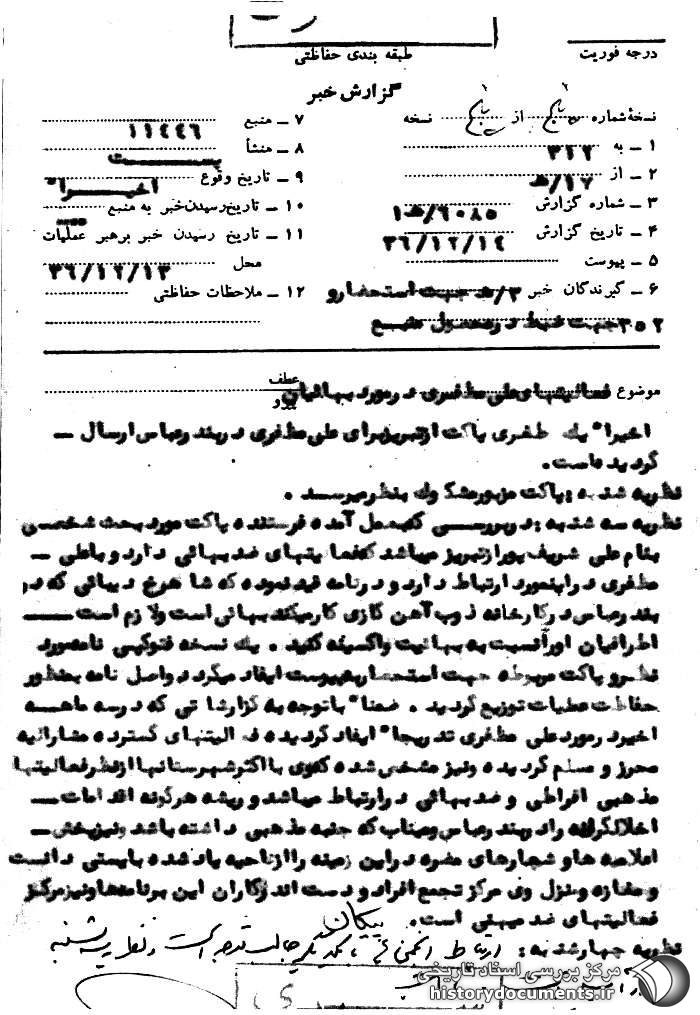 طبقه بندی حفاظتی
درجه فوریت
گزارش خبر
نسخهٔ شماره پنج از پنج نسخه
۱ ـ به ۳۱۲
۲ ـ از ۱۷/ﻫ
۳ ـ شماره گزارش ۶۰۸۵/ﻫ۱
۴ ـ تاریخ گزارش ۳۶/۱۲/۱۴
۵ ـ پیوست
۶ ـ گیرندگان خبر ۳/ﻫ جهت استحضار و
۳۵۲ جهت ضبط در محصول منبع
۷ ـ منبع ۱۱۴۴۶
۸ ـ منشأ
۹ ـ تاریخ وقوع اخیرا"
۱۰ ـ تاریخ رسیدن خبر به منبع
۱۱ ـ تاریخ رسیدن خبر برهبر عملیات
محل ۳۶/۱۲/۱۳
۱۲ ـ ملاحظات حفاظتی
موضوع فعالیتهای علی مظفری در مورد بهائیان
عطف
پیرو
اخیرا" یک طغری پاکت از تبریز برای علی مظفری در بندرعباس ارسال ـ
گردیده است.
نظریه شنبه : پاکت مزبور مشکوک بنظر میرسد .
نظریه سه شنبه : در بررسی که بعمل آمده فرستنده پاکت مورد بحث شخصی
بنام علی شریف پور از تبریز میباشد که فعالیتهای ضد بهائی دارد و با علی ـ
مظفری در اینمورد ارتباط دارد و در نامه قید نموده که شاهرخ دیبائی که در
بندرعباس در کارخانه ذوب آهن گازی کار میکند بهائی است و لازم است ـ
اطرافیان او را نسبت به بهائیت واکسینه کنید . یک نسخه فتوکپی نامه مورد
نظر و پاکت مربوطه جهت استحضار به پیوست ایفاد میگردد و اصل نامه بمنظور
حفاظت عملیات توزیع گردید . ضمنا" با توجه به گزارشاتی که در سه ماهه
اخیر در مورد علی مظفری تدریجا" ایفاد گردیده فعالیتهای گسترده مشارالیه
محرز و مسلم گردیده و نیز مشخص شده که وی با اکثر شهرستانها از نظر فعالیتها
مذهبی افراطی و ضد بهائی در ارتباط میباشد و ریشه هرگونه اقدامات ـ
اخلالگرانه را در بندرعباس و میناب که جنبه مذهبی داشته باشد و نیز پخش ـ
اعلامیه ها و شعارهای مضره در این زمینه را از ناحیه یاد شده بایستی دانست
و مغازه و منزل وی مرکز تجمع افراد و دست اندرکاران این برنامه ها و نیز مرکز
فعالیتهای ضد میهنی است. پیکان
نظریه چهارشنبه : ارتباط انجمنی با یکدیگر جالب توجه است و نظریه سه شنبه
مرکز بررسی اسناد تاریخی
historydocuments.ir